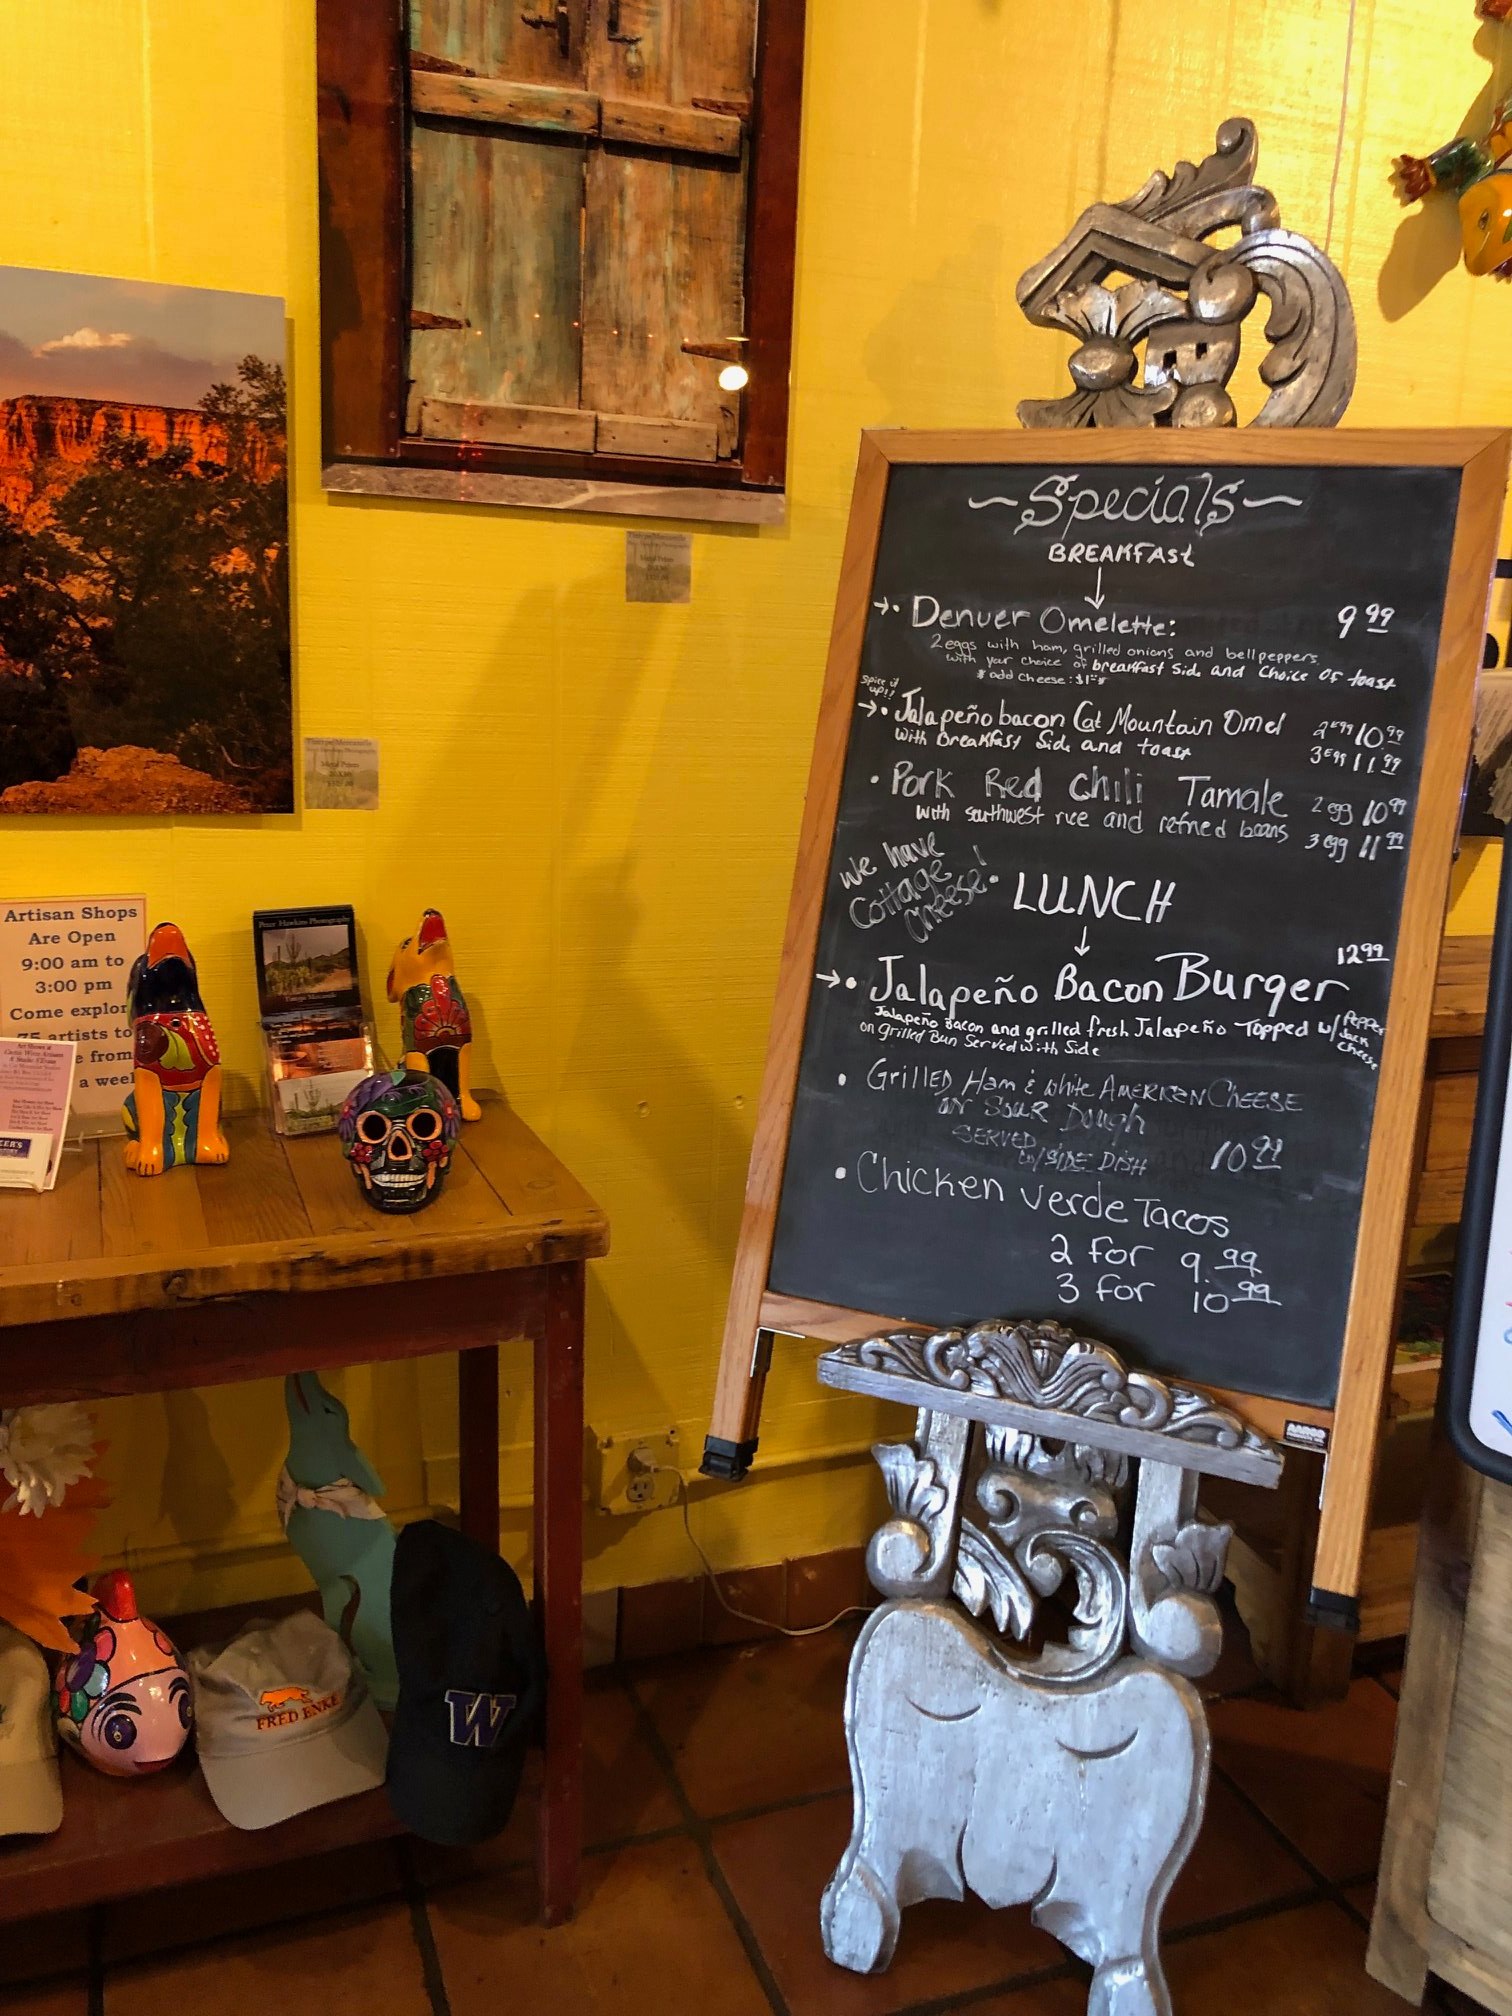 ~Specials~
BREAKFAST
Denver Omelette: 9 99
2 eggs with ham, grilled onions and bellpeppers
with your choice of breakfast side and choice of toast
add cheese: $1
Spice it
up!!
Jalapeño bacon Cat Mountain Omel 2 egg 10.99
with Breakfast Side and toast 3 egg 11.99
Pork Red Chili Tamale 2 egg 10 99
with southwest rice and refried beans 3 egg 11 99
We have
Cottage
Cheese!
LUNCH
12 99
Jalapeño Bacon Burger
Jalapeño Bacon and grilled fresh Jalapeño Topped w/ Pepper Jack Cheese
on Grilled Bun Served with Side
Grilled Ham & White American Cheese
on Sour Dough
SERVED
w/ SIDE DISH 10 99
Chicken Verde Tacos
2 for 9.99
3 for 10 99
AARCO
Artisan Shops
Are Open
9:00 am to
3:00 pm
Come explor
75 artists to
e from
a week
Peter Hawkins Photography
FRED ENKE
W